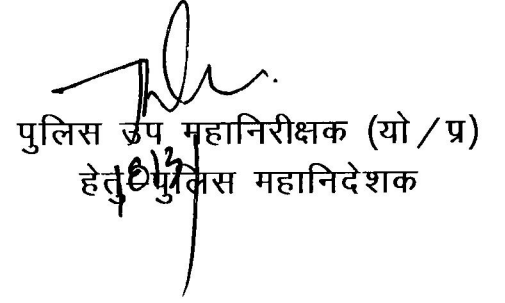 पुलिस उप महानिरीक्षक (यो / प्र)
हेतु-पुलिस महानिदेशक